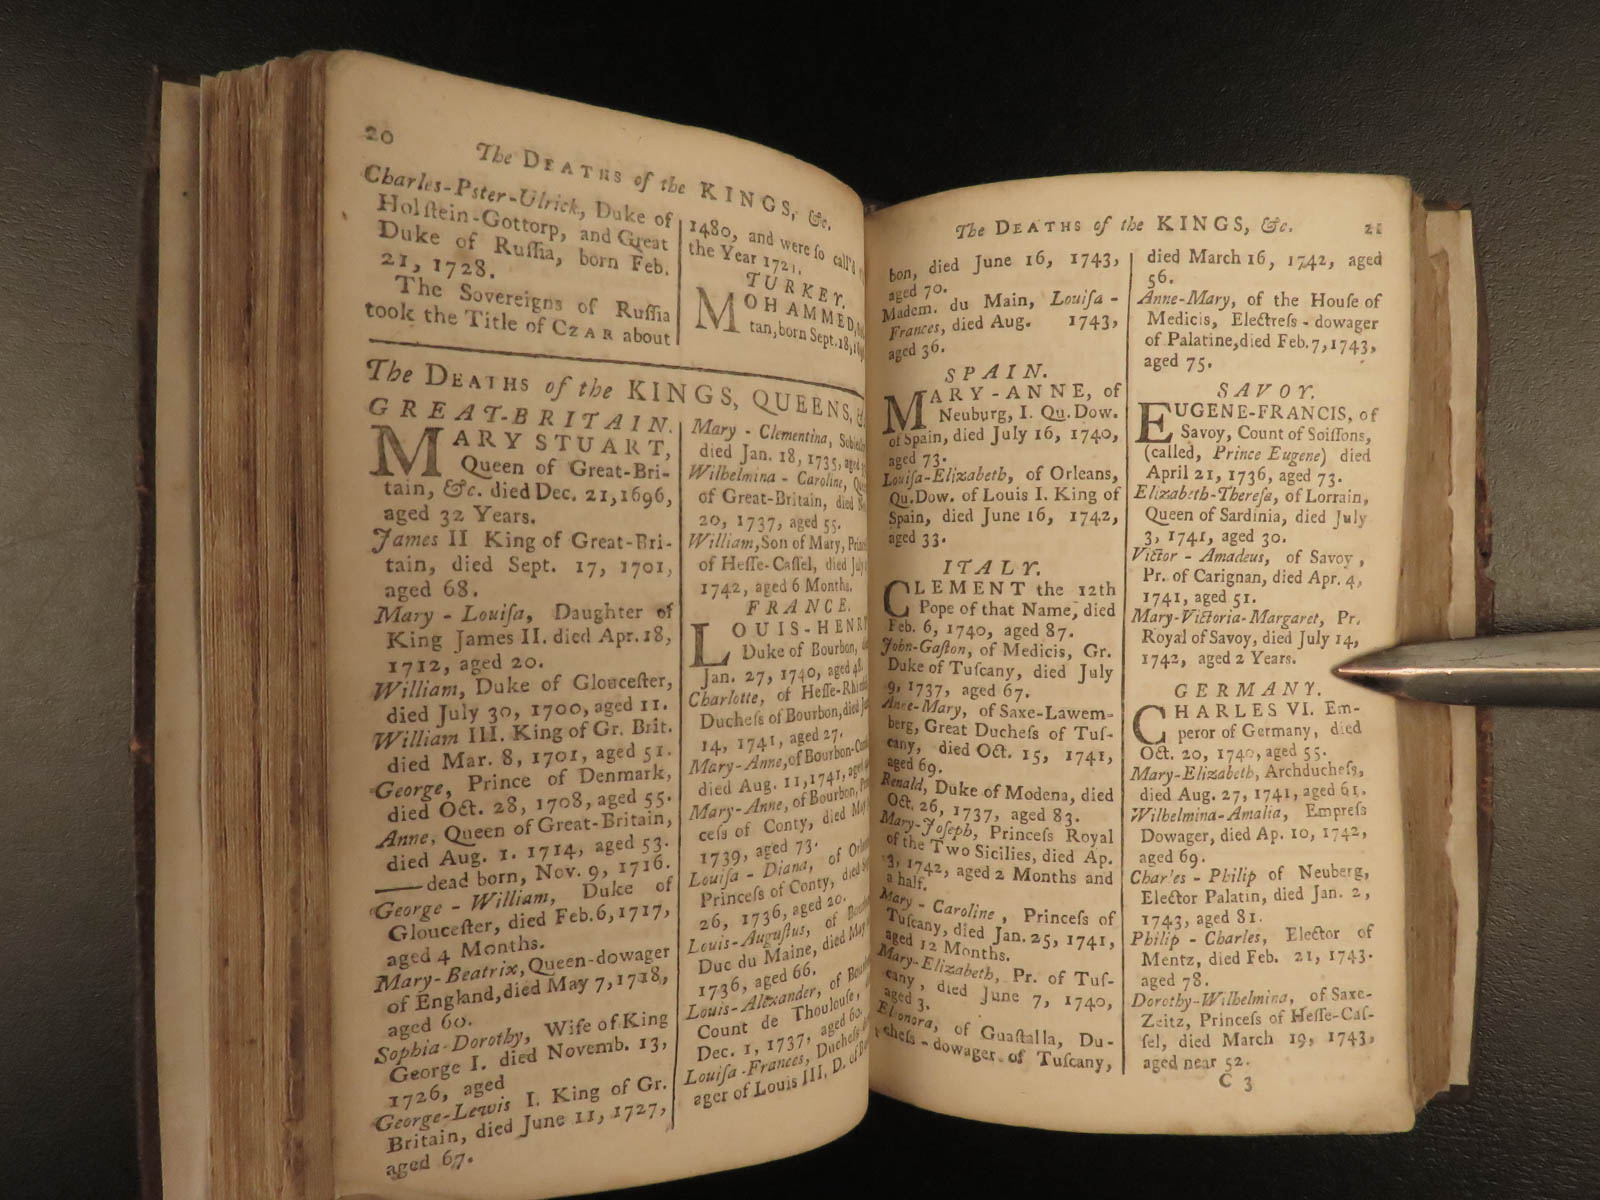 20
The DEATHS of the KINGS, &c.
Charles-Pster-Ulrick, Duke of
Holſtein-Gottorp, and Great
Duke of Ruſſia, born Feb.
21, 1728.
The Sovereigns of Ruſſia
took the Title of CZAR about
1480, and were ſo call'd
the Year 1721.
TURKEY.
MOHAMMED,
tan, born Sept. 18,
The DEATHS of the KINGS, QUEENS,
GREAT-BRITAIN.
MARY STUART,
Queen of Great-Bri-
tain, &c. died Dec. 21, 1696,
aged 32 Years.
James II King of Great-Bri-
tain, died Sept. 17, 1701,
aged 68.
Mary - Louiſa, Daughter of
King James II. died Apr. 18,
1712, aged 20.
William, Duke of Glouceſter,
died July 30, 1700, aged 11.
William III. King of Gr. Brit.
died Mar. 8, 1701, aged 51.
George, Prince of Denmark,
died Oct. 28, 1708, aged 55.
Anne, Queen of Great-Britain,
died Aug. 1. 1714, aged 53.
—— dead born, Nov. 9, 1716.
George - William, Duke of
Glouceſter, died Feb. 6, 1717,
aged 4 Months.
Mary-Beatrix, Queen-dowager
of England, died May 7, 1718,
aged 60.
Sophia-Dorothy, Wife of King
George I. died Novemb. 13,
1726, aged
George-Lewis I. King of Gr.
Britain, died June 11, 1727,
aged 67.
Mary - Clementina,
died Jan. 18, 1735, aged
Wilhelmina - Caroline,
of Great-Britain, died
20, 1737, aged 55.
William, Son of Mary,
of Heſſe-Caſſel, died July
1742, aged 6 Months.
FRANCE.
LOUIS-HENRY
Duke of Bourbon,
Jan. 27, 1740, aged 48.
Charlotte, of Heſſe-
Ducheſs of Bourbon, died
14, 1741, aged 27.
Mary-Anne, of Bourbon-
died Aug. 11, 1741, aged
Mary-Anne, of Bourbon,
ceſs of Conty, died May
1739, aged 73.
Louiſa - Diana, of
Princeſs of Conty, died
26, 1736, aged 20.
Louis-Auguſtus, of
Duc du Maine, died May
1736, aged 66.
Louis-Alexander, of
Count de Thoulouſe,
Dec. 1, 1737, aged 60.
Louiſa-Frances,
ager of Louis III. D. of
The DEATHS of the KINGS, &c.
21
bon, died June 16, 1743,
aged 70.
Madem. du Main, Louiſa-
Frances, died Aug. 1743,
aged 36.
SPAIN.
MARY-ANNE, of
Neuburg, I. Qu. Dow.
of Spain, died July 16, 1740,
aged 73.
Louiſa-Elizabeth, of Orleans,
Qu. Dow. of Louis I. King of
Spain, died June 16, 1742,
aged 33.
ITALY.
CLEMENT the 12th
Pope of that Name, died
Feb. 6, 1740, aged 87.
John-Gaſton, of Medicis, Gr.
Duke of Tuſcany, died July
9, 1737, aged 67.
Anne-Mary, of Saxe-Lawem-
berg, Great Ducheſs of Tuſ-
cany, died Oct. 15, 1741,
aged 69.
Renald, Duke of Modena, died
Oct. 26, 1737, aged 83.
Mary-Joſeph, Princeſs Royal
of the Two Sicilies, died Ap.
3, 1742, aged 2 Months and
a half.
Mary - Caroline, Princeſs of
Tuſcany, died Jan. 25, 1741,
aged 12 Months.
Mary-Elizabeth, Pr. of Tuſ-
cany, died June 7, 1740,
aged 3.
Elonora, of Guaſtalla, Du-
cheſs - dowager of Tuſcany,
died March 16, 1742, aged
56.
Anne-Mary, of the Houſe of
Medicis, Electreſs - dowager
of Palatine, died Feb. 7, 1743,
aged 75.
SAVOY.
EUGENE-FRANCIS, of
Savoy, Count of Soiſſons,
(called, Prince Eugene) died
April 21, 1736, aged 73.
Elizabeth-Thereſa, of Lorrain,
Queen of Sardinia, died July
3, 1741, aged 30.
Victor - Amadeus, of Savoy,
Pr. of Carignan, died Apr. 4,
1741, aged 51.
Mary-Victoria-Margaret, Pr.
Royal of Savoy, died July 14,
1742, aged 2 Years.
GERMANY.
CHARLES VI. Em-
peror of Germany, died
Oct. 20, 1740, aged 55.
Mary-Elizabeth, Archducheſs,
died Aug. 27, 1741, aged 61.
Wilhelmina-Amalia, Empreſs
Dowager, died Ap. 10, 1742,
aged 69.
Charles - Philip of Neuberg,
Elector Palatin, died Jan. 2,
1743, aged 81.
Philip - Charles, Elector of
Mentz, died Feb. 21, 1743.
aged 78.
Dorothy-Wilhelmina, of Saxe-
Zeitz, Princeſs of Heſſe-Caſ-
ſel, died March 19, 1743,
aged near 52.
C 3